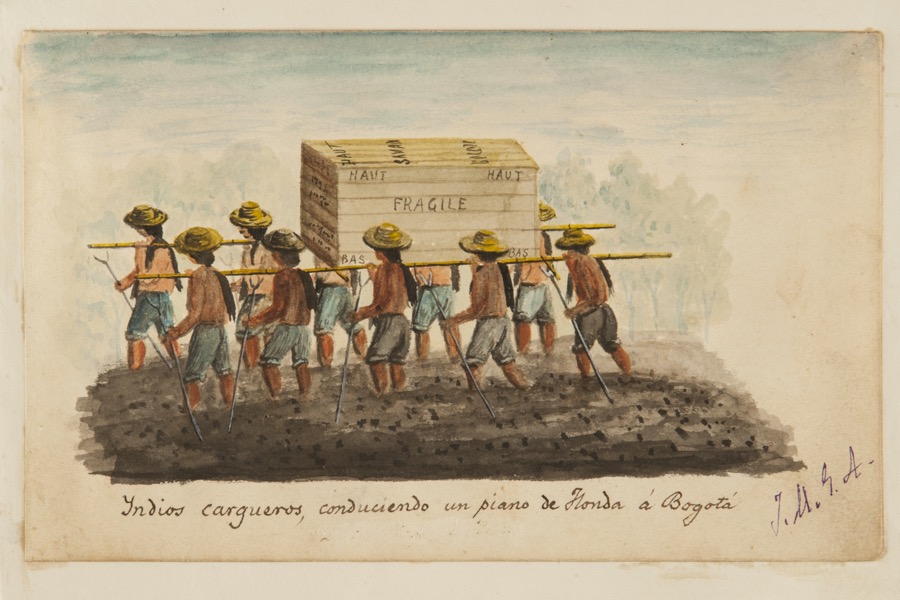 HAUT
HAUT
FRAGILE
BAS
BAS
Indios cargueros, conduciendo un piano de Honda á Bogotá
J. M. G. A.